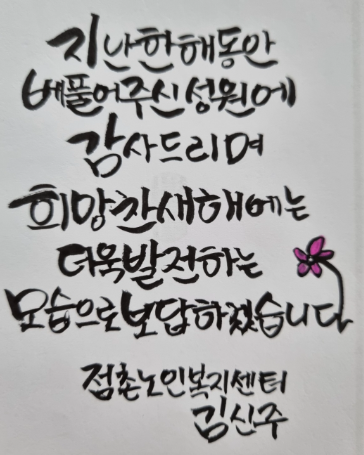 지난한해동안
베풀어주신성원에
감사드리며
희망찬새해에는
더욱발전하는
모습으로보답하겠습니다
점촌노인복지센터
김신주